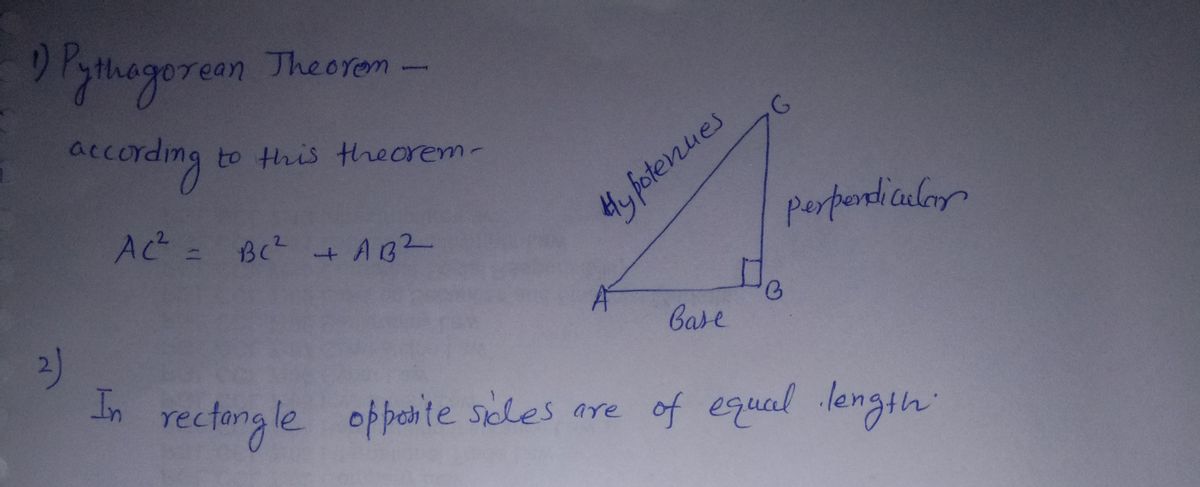 1) Pythagorean Theorem -
according to this theorem -
AC² = BC² + AB²
C
Hypotenues
perpendicular
A
B
Base
2)
In rectangle opposite sides are of equal length.